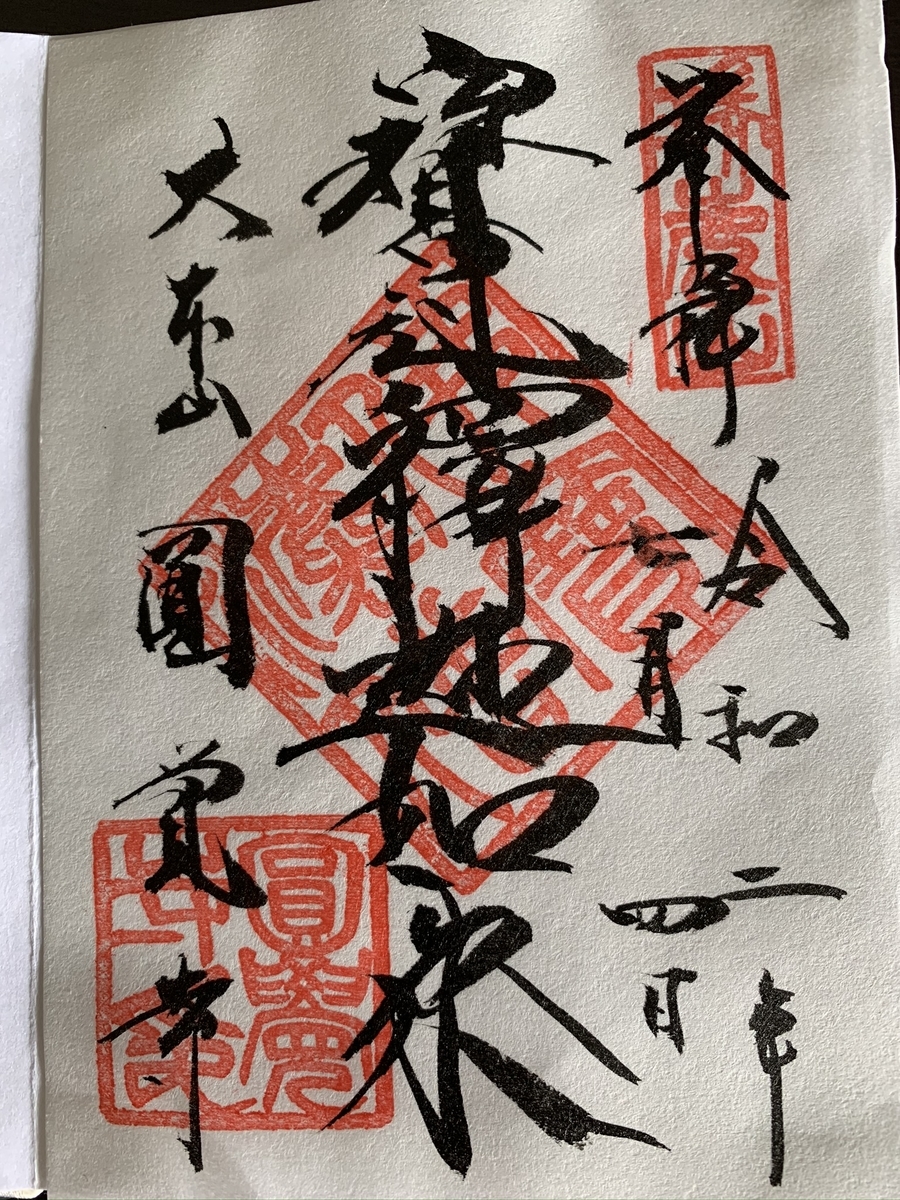 奉拝
令和二年
七月四日
寶冠釋迦如来
大本山 圓覺寺
圓覺
寺印